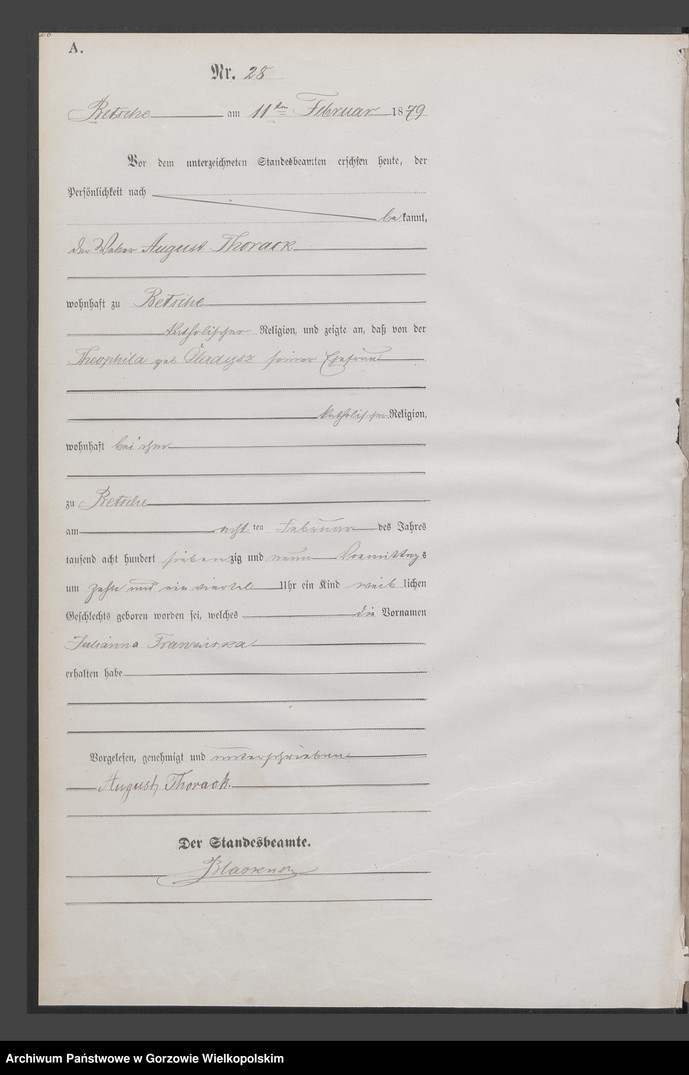 A.
Nr. 28
Betsche am 11ten Februar 1879
Vor dem unterzeichneten Standesbeamten erschien heute, der
Persönlichkeit nach
bekannt,
der Weber August Thorack
wohnhaft zu Betsche
katholischer Religion, und zeigte an, daß von der
Theophila geb. Gladysz seiner Ehefrau
katholischer Religion,
wohnhaft bei ihm
zu Betsche
am acht ten Februar des Jahres
tausend acht hundert siebenzig und neun Vormittags
um zehn und ein viertel Uhr ein Kind weiblichen
Geschlechts geboren worden sei, welches die Vornamen
Julianna Franziska
erhalten habe
Vorgelesen, genehmigt und unterschrieben
August Thorack.
Der Standesbeamte.
Archiwum Państwowe w Gorzowie Wielkopolskim